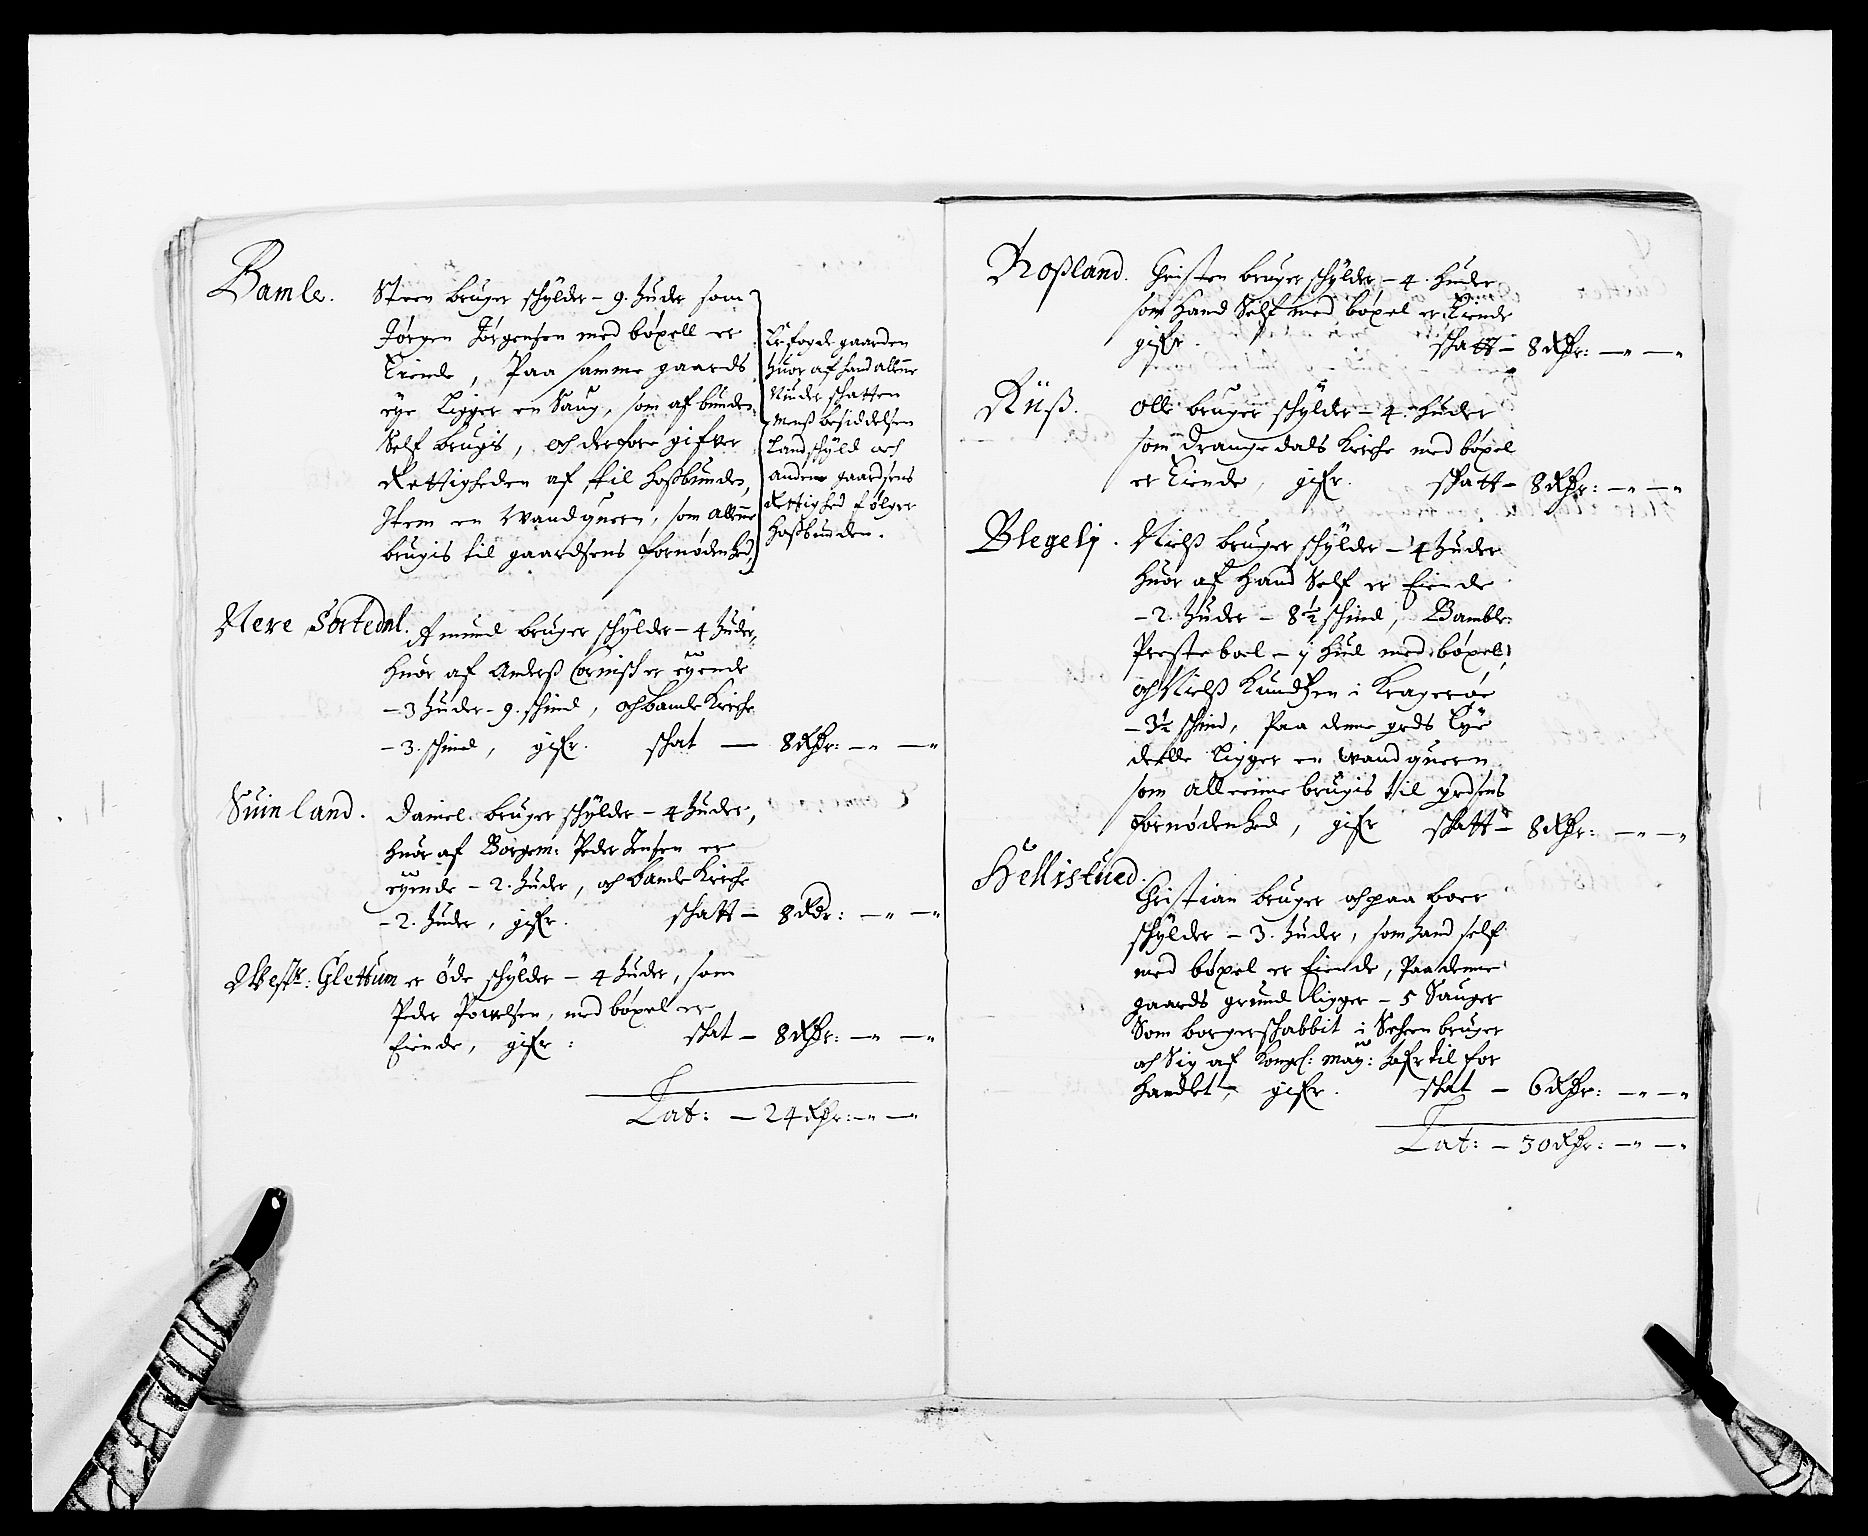 Bamle. Steen bruger schylder - 9. huder som
Jørgen Jørgensen med bøxell er
Eiende, Paa samme gaards
eye ligger en Saug, som af bunden
Self brugis, och derfore gifver
Rettigheden af til hoßbunden,
Item en Wandquern, som allene
brugis til gaardsens fornødenhed,
gaarden
huor af hand allene
Niuder schatten
Menß besiddelsen
Landschyld och
anden gaardsens
Rettighed følger
hoßbunden.
Nere Sortedal. Amund bruger schylder - 4 huder,
huor af Anderß Cornisch er eyende
- 3 huder - 9. schind, och bamle Kirche
- 3. schind, gifr. schat - 8 Rdr: - " - "
Suinland. Daniel bruger schylder - 4 huder,
huor af Borgem: Peder Jensen er
eyende - 2. huder, och bamle Kirche
- 2. huder, gifr. schatt - 8 Rdr: - " - "
Westr: Glettum er øde schylder - 4 huder, som
Peder Powelsen, med bøxel er
Eiende, gifr: schat - 8 Rdr: - " - "
Lat: - 24 Rdr: - " - "
Roßland. Christen bruger schylder - 4. huder
som hand Self med bøxel er Eiende
gifr. schatt - 8 Rdr: - " - "
Riiß. Olle bruger schylder - 4. huder
som Drangedals Kirche med bøxel
er Eiende, gifr. schatt - 8 Rdr: - " - "
Blegelj. Nielß bruger schylder - 4 huder
huor af hand Self er Eiende
- 2. huder - 8½ schind, Bamble
Presteboel - 1 hud med bøxel,
och Nielß Knudsen i Kragerøe
- 3½ schind, Paa denne grds Eye
deelle ligger en Wandquern
som alleeniste brugis til grdsens
fornødenhed, gifr schatt - 8 Rdr: - " - "
Hellistued. Christian bruger och paa boer
schylder - 3. huder, som hand self
med bøxel er Eiende, Paa denne
gaards grund ligger - 5 Sauger
Som borgerschabbit i Scheen bruger
och Sig af Kongl: May: hafr til for
handlet, gifr. schat - 6 Rdr: - " - "
Lat: - 30 Rdr: - " - "